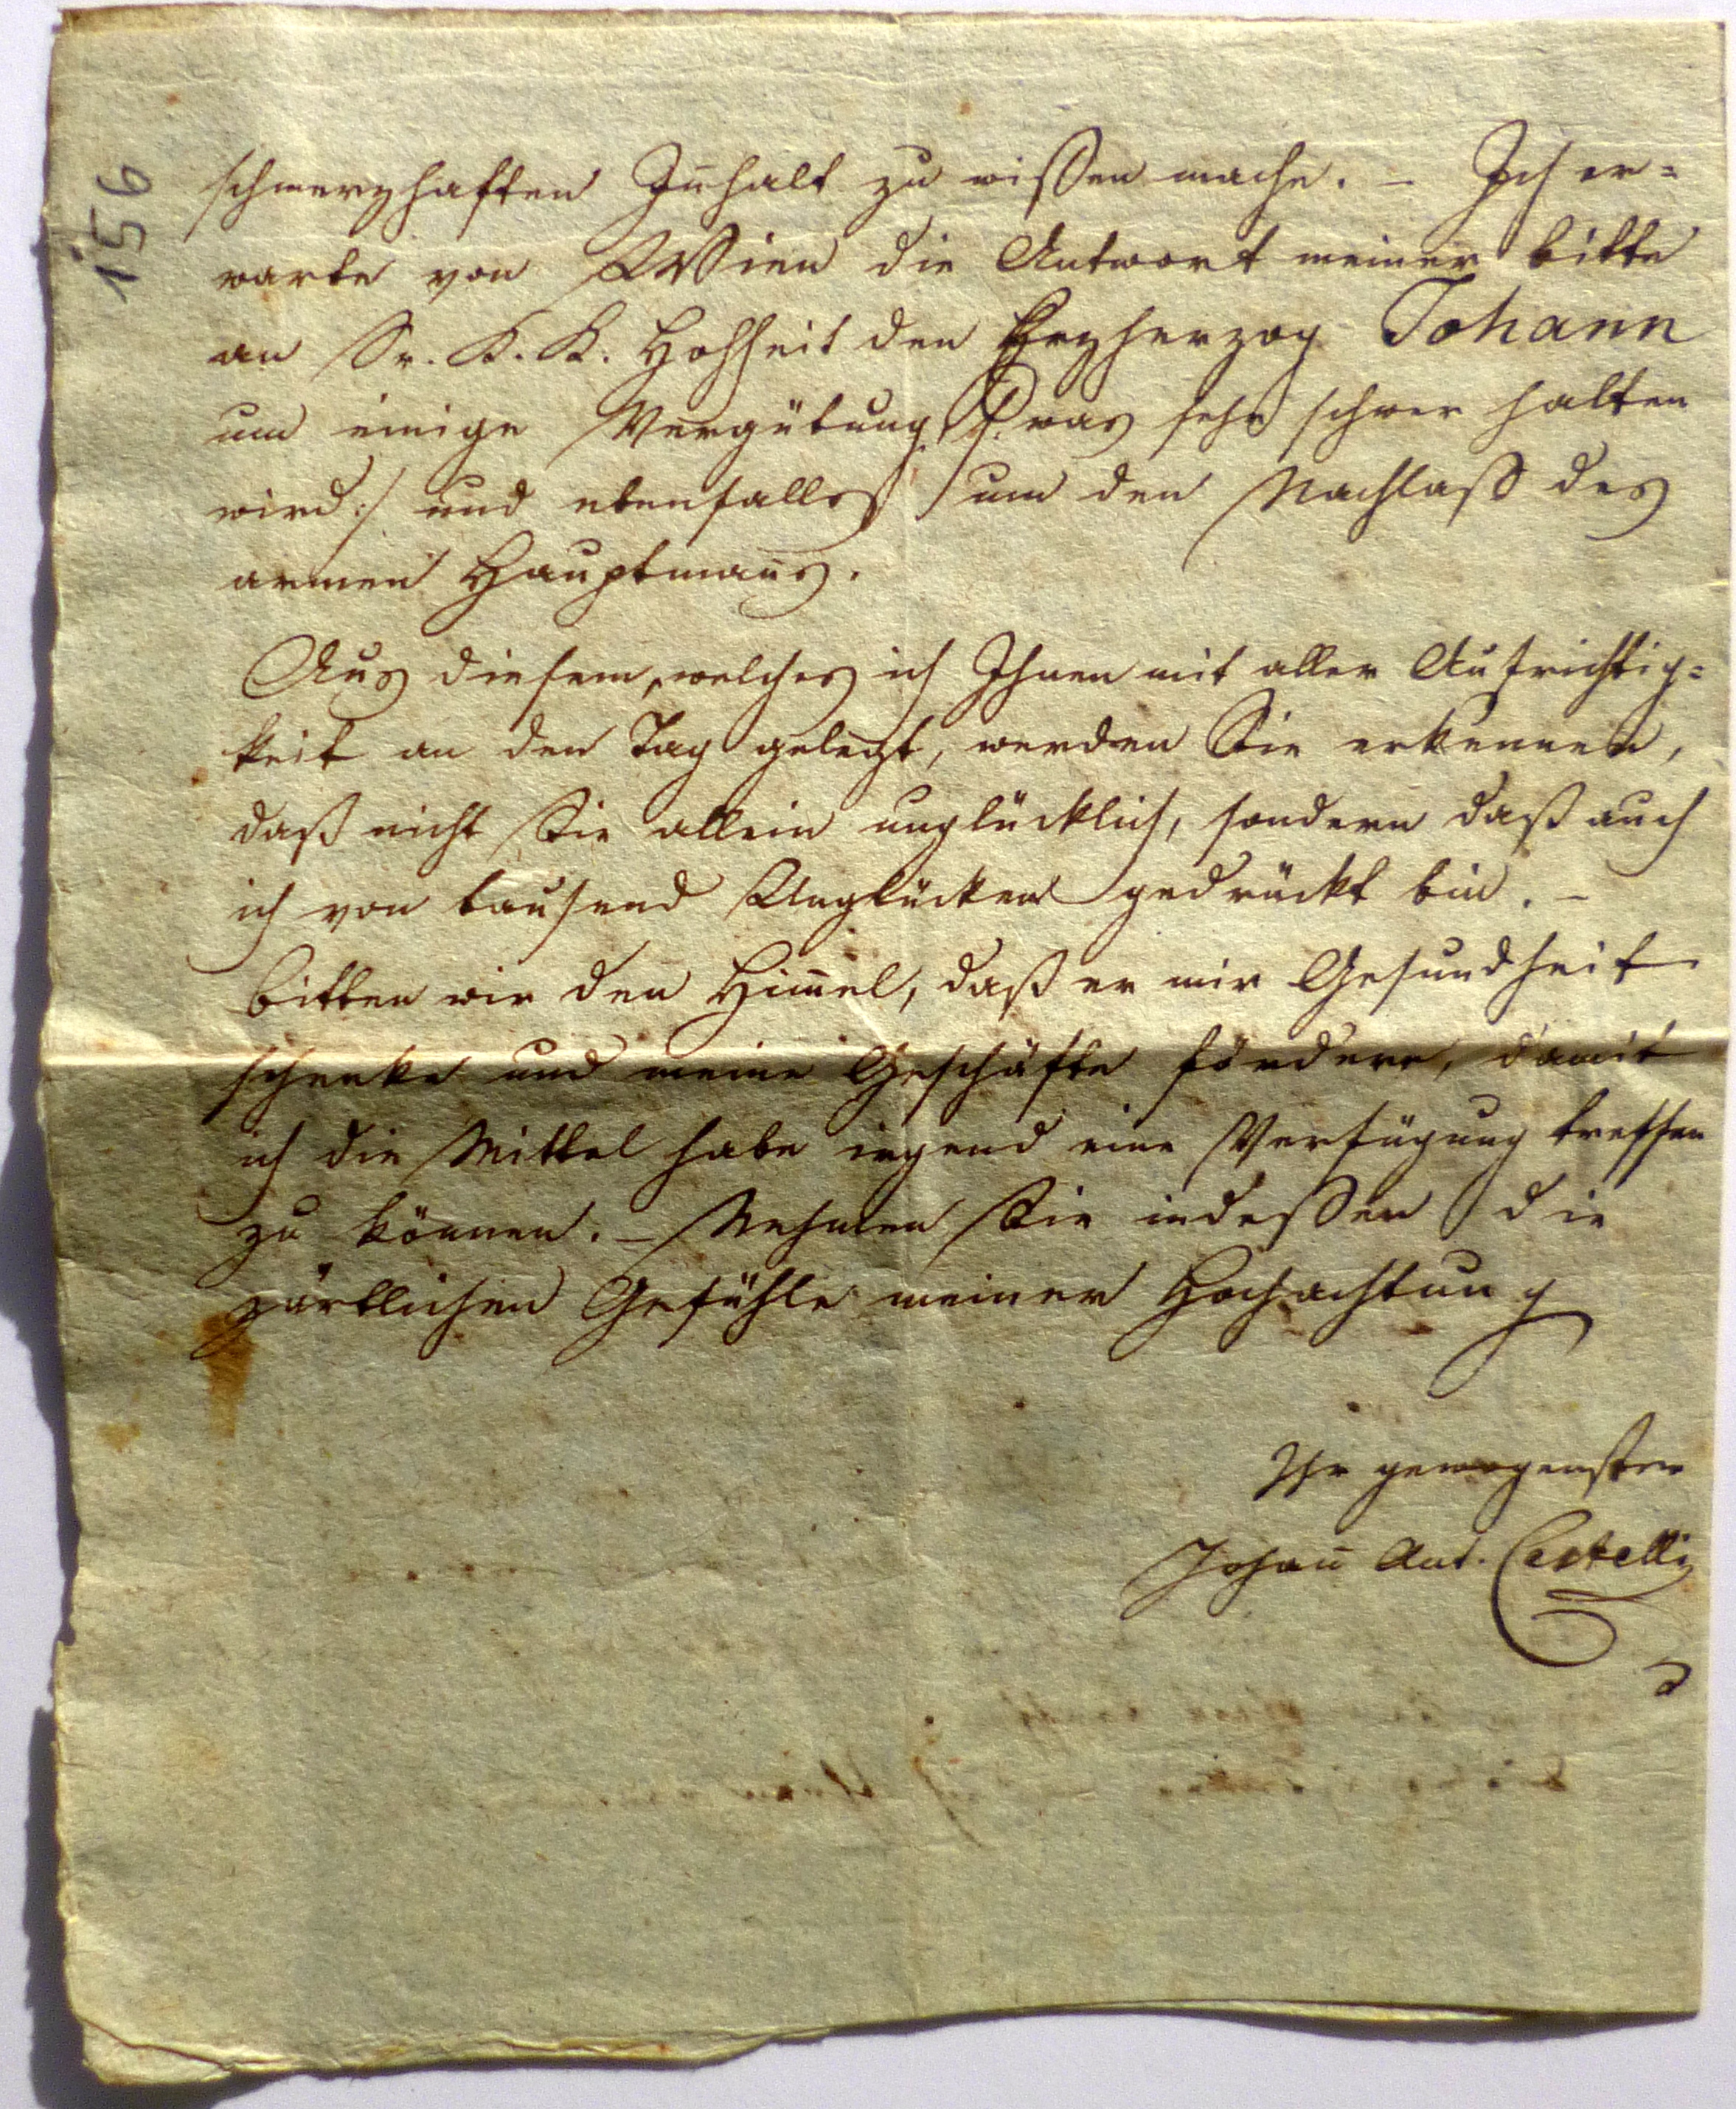 156
schmerzhaften Inhalt zu wissen mache. – Ich er=
warte von Wien die Antwort meiner bitte
an Sr. K. K. Hohheit den Erzherzog Johann
um einige Vergütung /: was sehr schwer halten
wird :/ und ebenfalls um den Nachlaß des
armen Hauptman̄s.
Aus diesem, welches ich Ihnen mit aller Aufrichtig=
keit an den Tag gelegt, werden Sie erkennen,
daß nicht Sie allein unglücklich, sondern daß auch
ich von tausend Unglücken gedrückt bin. –
bitten wir den Him̄el, daß er mir Gesundheit
schenke und meine Geschäfte fördere, damit
ich die Mittel habe irgend eine Verfügung treffen
zu können. – Nehmen Sie indessen die
zärtlichen Gefühle meiner Hochachtung
Ihr gewogenster
Johan̄ Ant. Castelli